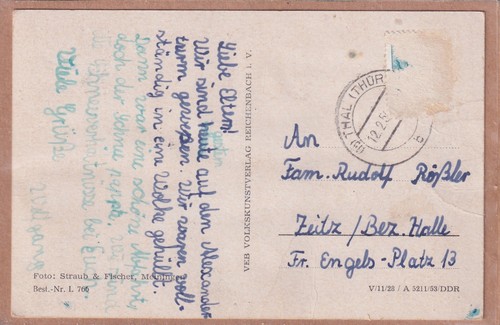 Liebe Eltern!
Wir sind heute auf dem Alexander-
turm gewesen. Wir waren voll-
ständig in eine Wolke gehüllt.
Dann war eine schöne
doch der Schnee
Viele Grüße
Wolfgang
VEB VOLKSKUNSTVERLAG REICHENBACH i. V.
Foto: Straub & Fischer, Meiningen
Best.-Nr. L 766
THAL (THÜR
12.2.5
An
Fam. Rudolf Rößler
Zeitz / Bez. Halle
Fr. Engels-Platz 13
V/11/28 / A 5211/53/DDR